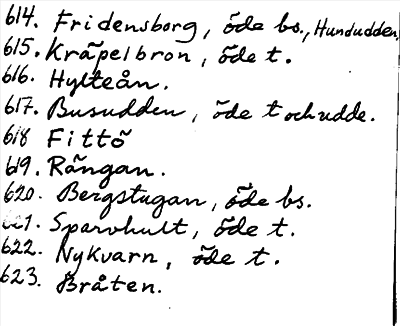 614. Fridensborg, öde bs., Hundudden,
615. Kräpelbron, öde t.
616. Hylteån.
617. Busudden, öde t och udde.
618 Fittö
619. Rängan.
620. Bergstugan, öde bs.
621. Sparvhult, öde t.
622. Nykvarn, öde t.
623. Bråten.